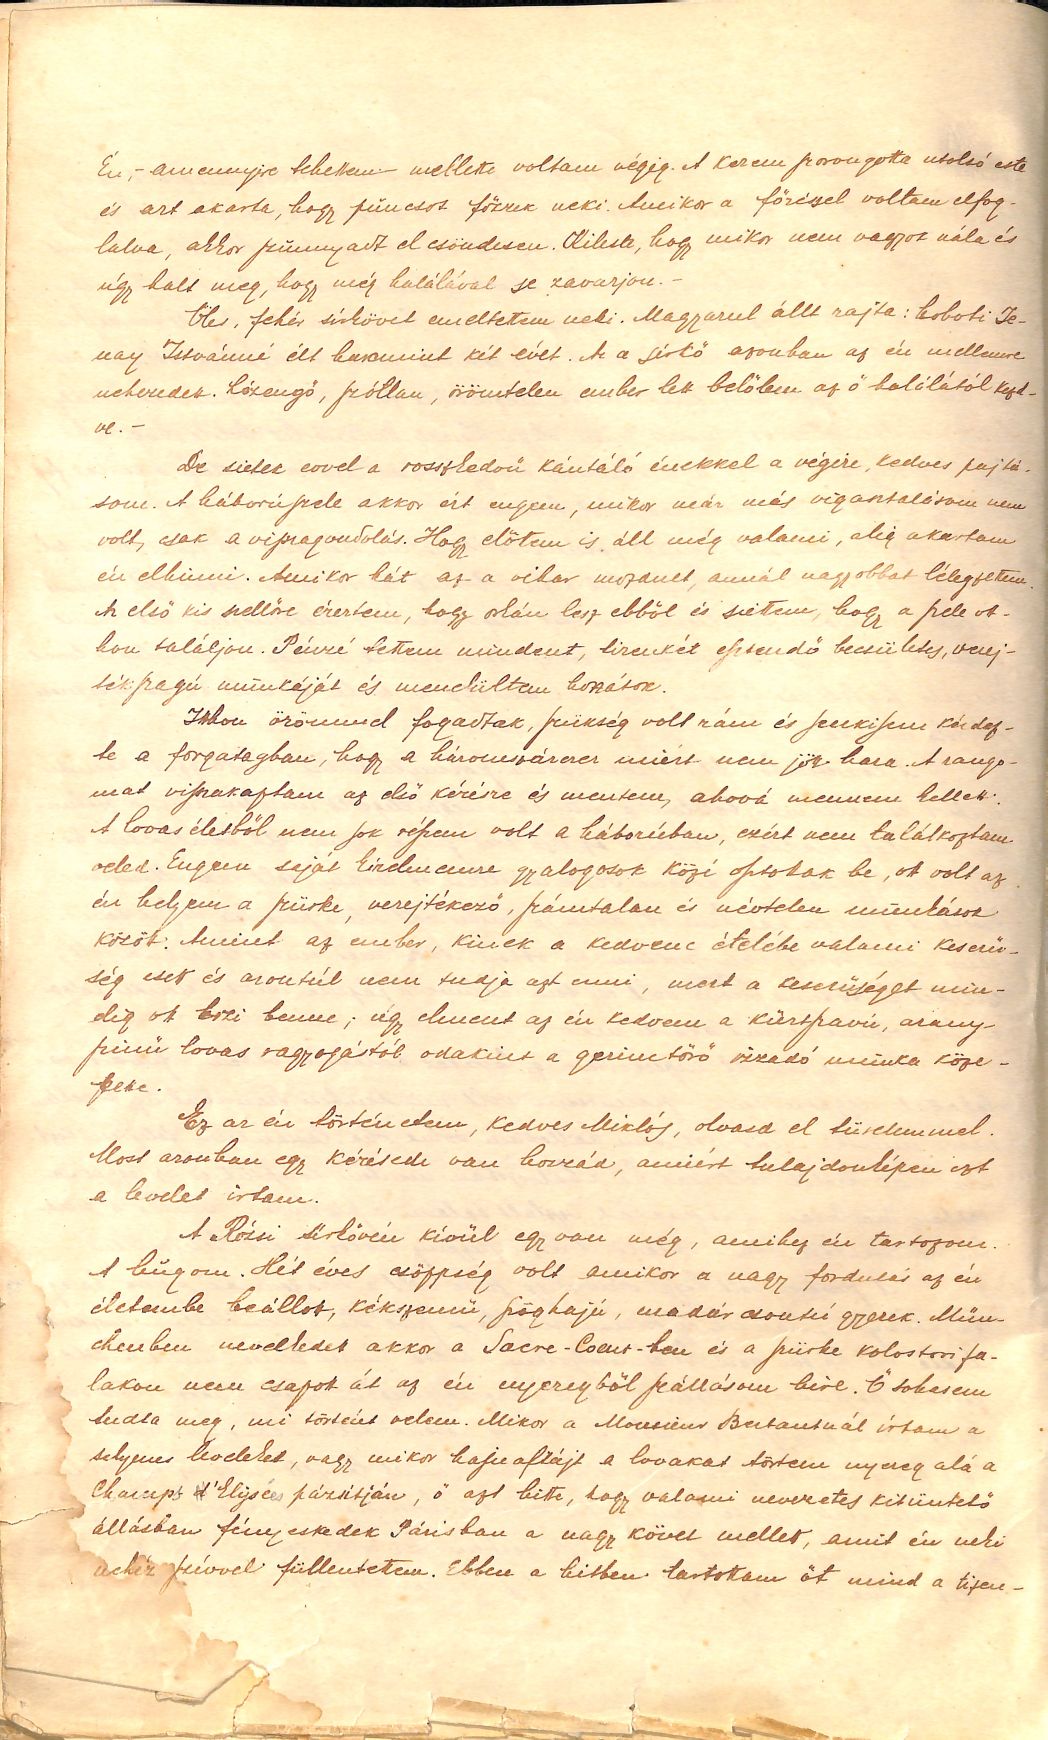 Én, - amennyire lehetten - mellette voltam végig. A kezem szorongatta utolsó este
és azt akarta, hogy puncsot főzzek neki. Amikor a főzéssel voltam elfog-
lalva, akkor szunnyadt el csöndesen. Kileste, hogy mikor nem vagyok nála és
úgy halt meg, hogy még halálával se zavarjon. -
fehér sírkövet emeltettem neki. Magyarul állt rajta: hoboti Te-
nay Istvánné élt huszmint két évet. Az a sírkő azonban az én mellemre
nehezedett. Lézengő, szótlan, örömtelen ember lett belőlem az ő halálától kezd-
ve. -
De sietek evvel a rosszkedvű kántáló énekkel a végire, kedves pajtá-
som. A háború szele akkor ért engem, mikor már más vigasztalásom nem
volt, csak a visszagondolás. Hogy előttem is áll még valami, alig akartam
én elhinni. Amikor hát az a vihar mozdult, annál nagyobbat lélegzettem.
Az első kis szellőre éreztem, hogy orkán lesz ebből és siettem, hogy a szele ot-
hon találjon. Pénzzé tettem mindent, tizenkét esztendő becsületes, verej-
tékszagú munkáját és mendültem hozzátok.
Itthon örömmel fogadtak, szükség volt rám és senkisem kérdez-
te a forgatagban, hogy a háromszázezer miért nem jött haza. A rango-
mat visszakaptam az első kérésre és mentem, ahová mennem kellett.
A lovas életből nem sok részem volt a háborúban, ezért nem találkoztam
veled. Engem saját kérelmemre gyalogosok közé osztottak be, ott volt az
én helyem a szürke, verejtékező, számtalan és névtelen munkások
között. Amint az ember, kinek a kedvenc ételébe valami keserű-
ség esett és azontúl nem tudja azt enni, mert a keserűséget min-
dig ott érzi benne; úgy elment az én kedvem a kürtszavú, arany-
színű lovas ragyogástól odakint a gerinctörő izzadó munka köze-
pette.
Ez az én történetem, kedves Miklós, olvasd el türelemmel.
Most azonban egy kérésem van hozzád, amiért tulajdonképen ezt
a levelet írtam.
A Rózsi sírkövén kívül egy van még, amihez én tartozom.
A húgom. Hét éves csöppség volt amikor a nagy fordulás az én
életembe beállott, kékszemű, szőghajú, madár csontú gyerek. Mün-
chenben nevelkedett akkor a Sacre-Coeur-ben és a szürke kolostori fa-
lakon nem csapott át az én nyeregből szállásom híre. Ő sohasem
tudta meg, mi történt velem. Mikor a Monsieur Bertantnál írtam a
selymes leveleket, vagy mikor hajnaltájt a lovakat törtem nyereg alá a
Champs d'Elysées pázsitján, ő azt hitte, hogy valami nevezetes kitüntető
állásban fényeskedek Párisban a nagy követ mellett, amit én neki
nehéz szívvel füllentettem. Ebben a hitben tartottam őt mind a tizen-